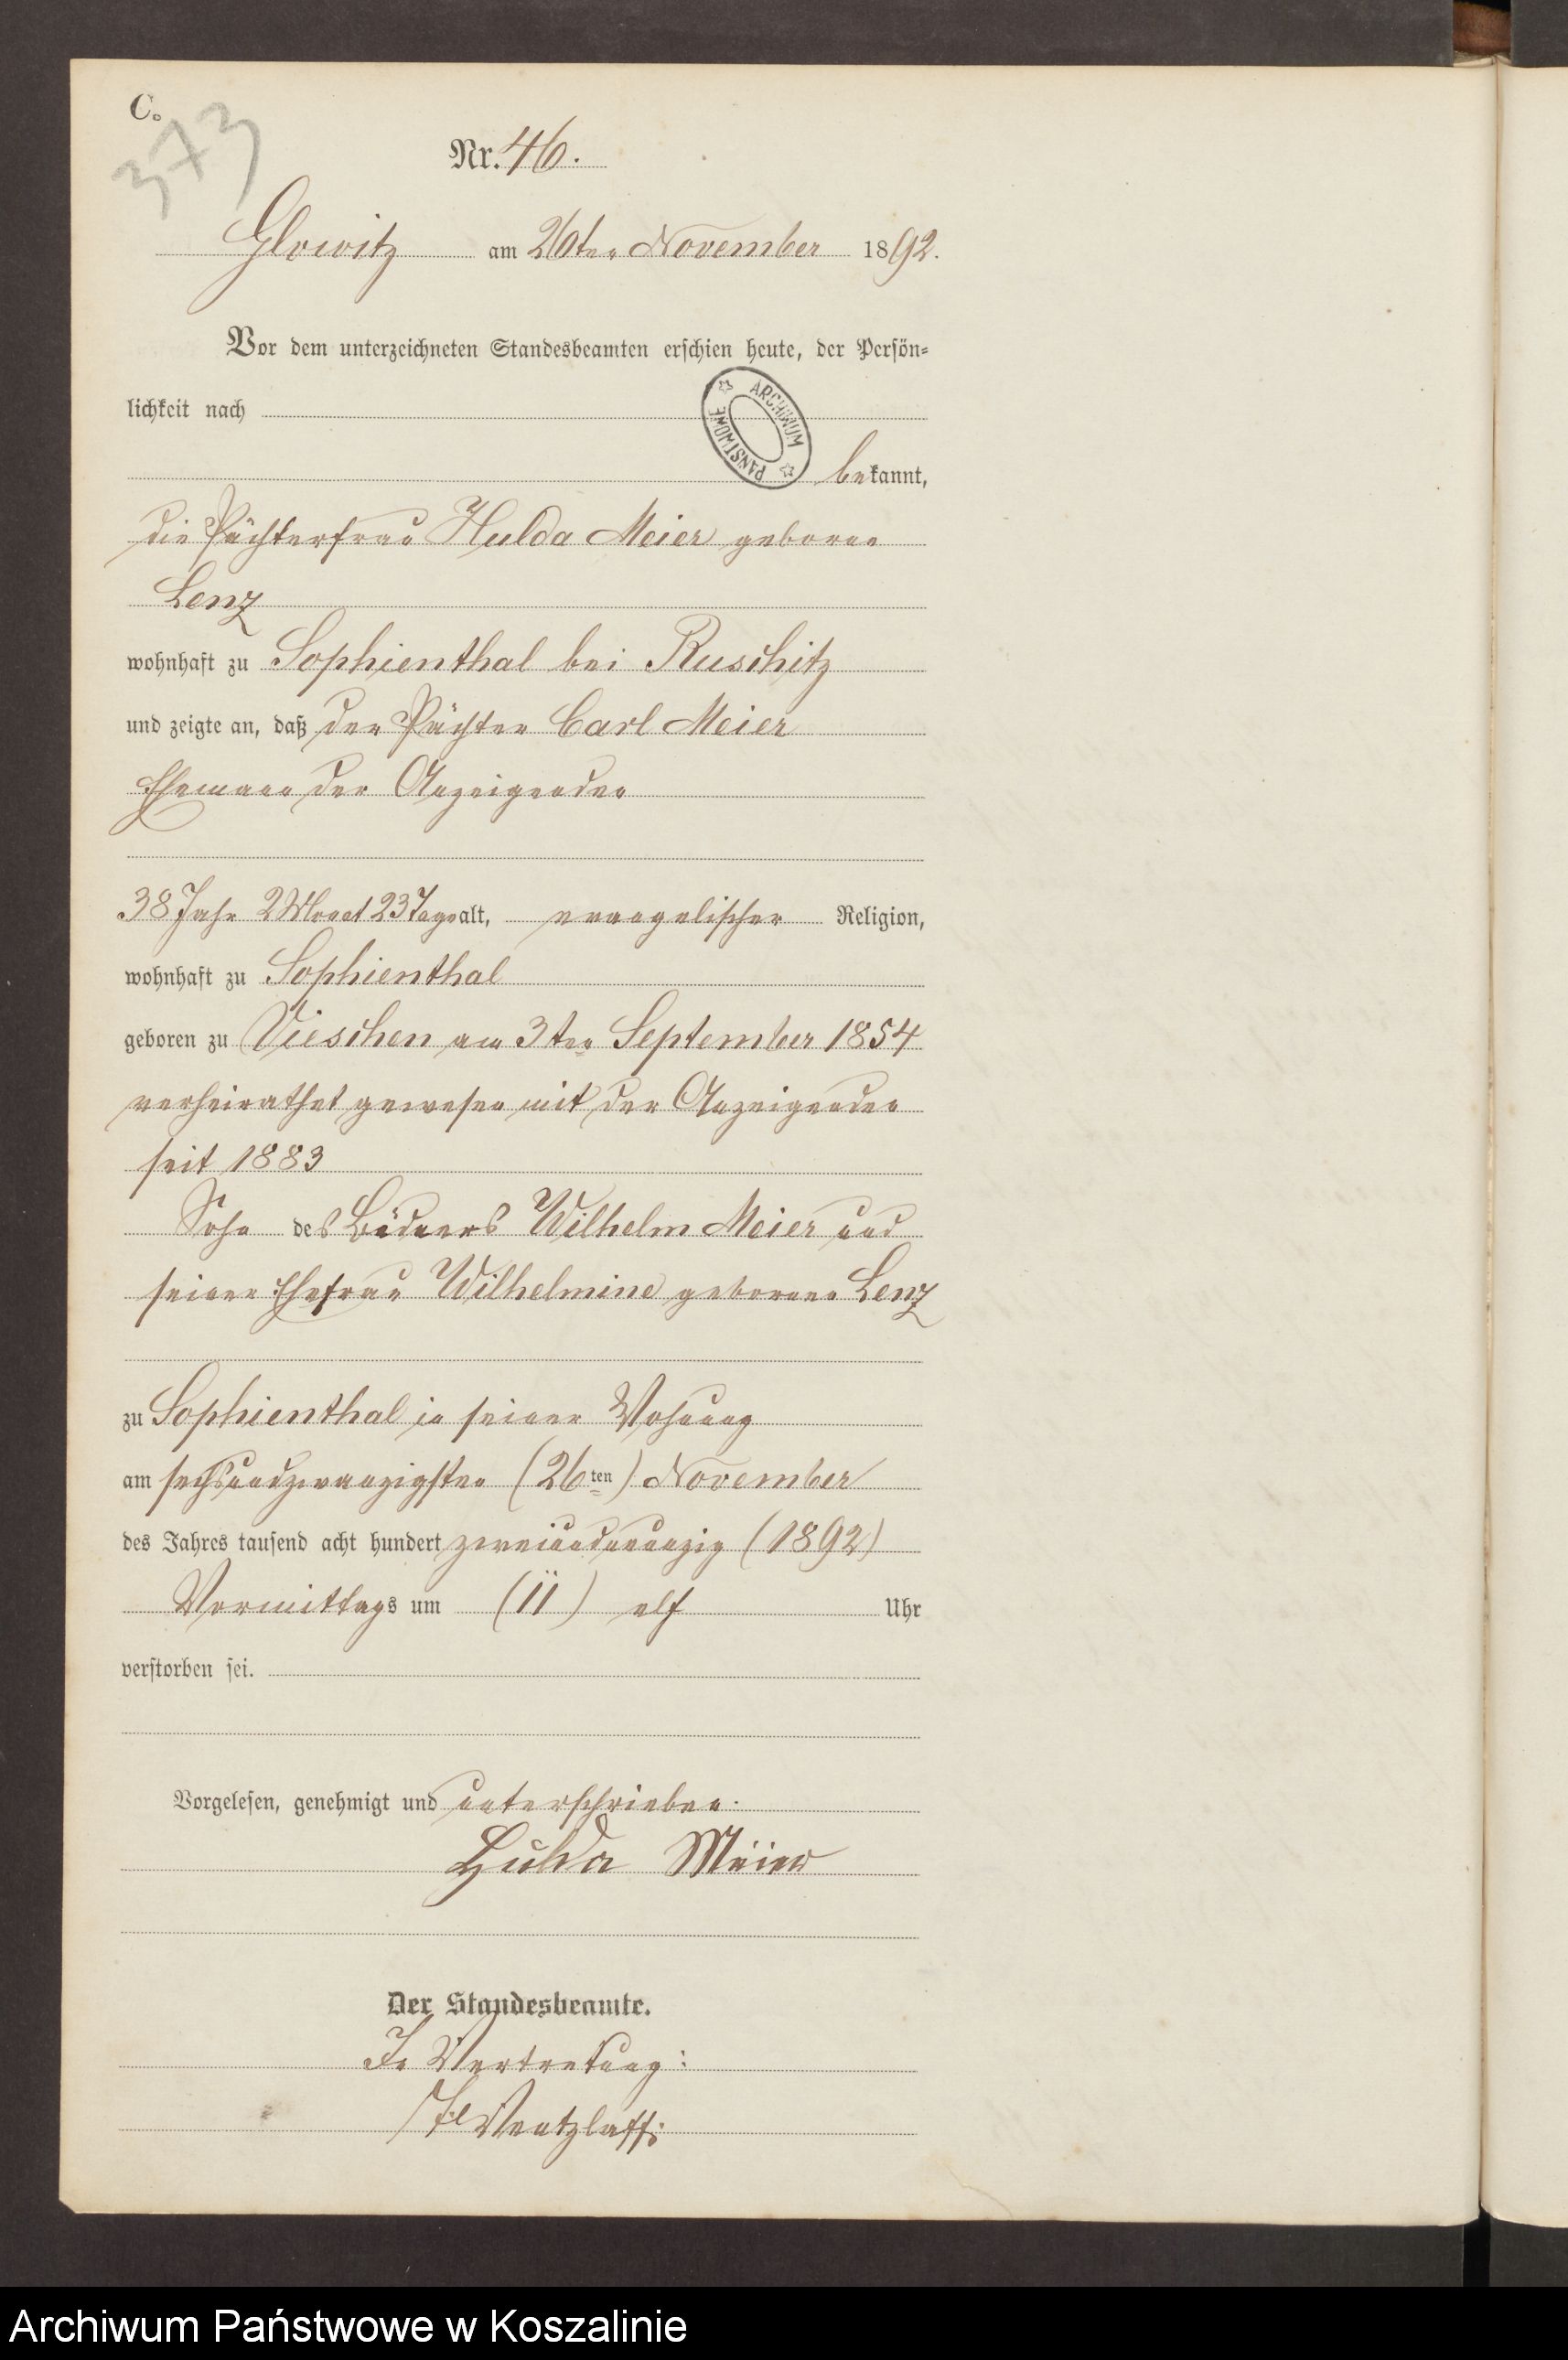 C.
373
Nr. 46.
Glowitz am 26ten November 1892.
Vor dem unterzeichneten Standesbeamten erschien heute, der Persön-
lichkeit nach
ARCHIWUM PAŃSTWOWE
bekannt,
die Pächterfrau Hulda Meier geborne
Lenz
wohnhaft zu Sophienthal bei Ruschitz
und zeigte an, daß der Pächter Carl Meier
Ehemann der Anzeigenden
38 Jahr 2 Monat 23 Tage alt, evangelischer Religion,
wohnhaft zu Sophienthal
geboren zu Vieschen am 3ten September 1854
verheirathet gewesen mit der Anzeigenden
seit 1883
Sohn des Büdners Wilhelm Meier und
seiner Ehefrau Wilhelmine geborene Lenz
zu Sophienthal in seiner Wohnung
am sechsundzwanzigsten (26ten) November
des Jahres tausend acht hundert zweiundneunzig (1892)
Vormittags um (11) elf Uhr
verstorben sei.
Vorgelesen, genehmigt und unterschrieben.
Hulda Meier
Der Standesbeamte.
In Vertretung:
Wentzlaff
Archiwum Państwowe w Koszalinie